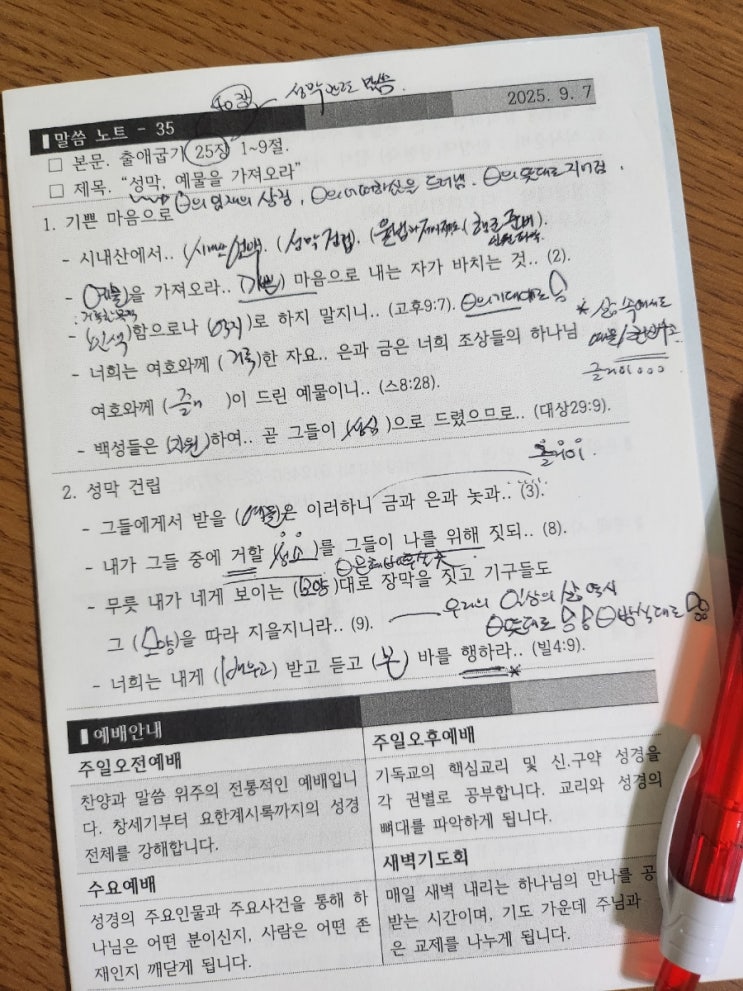 40장 성막 관련 말씀.
말씀 노트 - 35 2025. 9. 7
□ 본문. 출애굽기 25장 1~9절.
□ 제목. “성막, 예물을 가져오라”
Θ의 임재의 상징, Θ의 드러냄. Θ의 뜻대로 지어짐.
1. 기쁜 마음으로
- 시내산에서.. (시내산 언약. (성막 건립). (율법과 준비).
- (예물)을 가져오라.. (기쁜) 마음으로 내는 자가 바치는 것.. (2).
: 거룩한
- (인색)함으로나 (억지)로 하지 말지니.. (고후9:7). Θ의 기대대로
* 삶 속에서도
- 너희는 여호와께 (거룩)한 자요.. 은과 금은 너희 조상들의 하나님
여호와께 (즐거)이 드린 예물이니.. (스8:28).
즐거이 ooo
- 백성들은 (자원)하여.. 곧 그들이 (성심)으로 드렸으므로.. (대상29:9).
즐거이.
2. 성막 건립
- 그들에게서 받을 (예물)은 이러하니 금과 은과 놋과.. (3).
- 내가 그들 중에 거할 (성소)를 그들이 나를 위해 짓되.. (8).
- 무릇 내가 네게 보이는 (모양)대로 장막을 짓고 기구들도
그 (모양)을 따라 지을지니라.. (9). 우리의 인생의 삶 역시
Θ뜻대로 Θ방식대로
- 너희는 내게 (배우고) 받고 듣고 (본) 바를 행하라.. (빌4:9).
*
예배안내
주일오전예배
찬양과 말씀 위주의 전통적인 예배입니
다. 창세기부터 요한계시록까지의 성경
전체를 강해합니다.
주일오후예배
기독교의 핵심교리 및 신.구약 성경을
각 권별로 공부합니다. 교리와 성경의
뼈대를 파악하게 됩니다.
수요예배
성경의 주요인물과 주요사건을 통해 하
나님은 어떤 분이신지, 사람은 어떤 존
재인지 깨닫게 됩니다.
새벽기도회
매일 새벽 내리는 하나님의 만나를 공
받는 시간이며, 기도 가운데 주님과
은 교제를 나누게 됩니다.